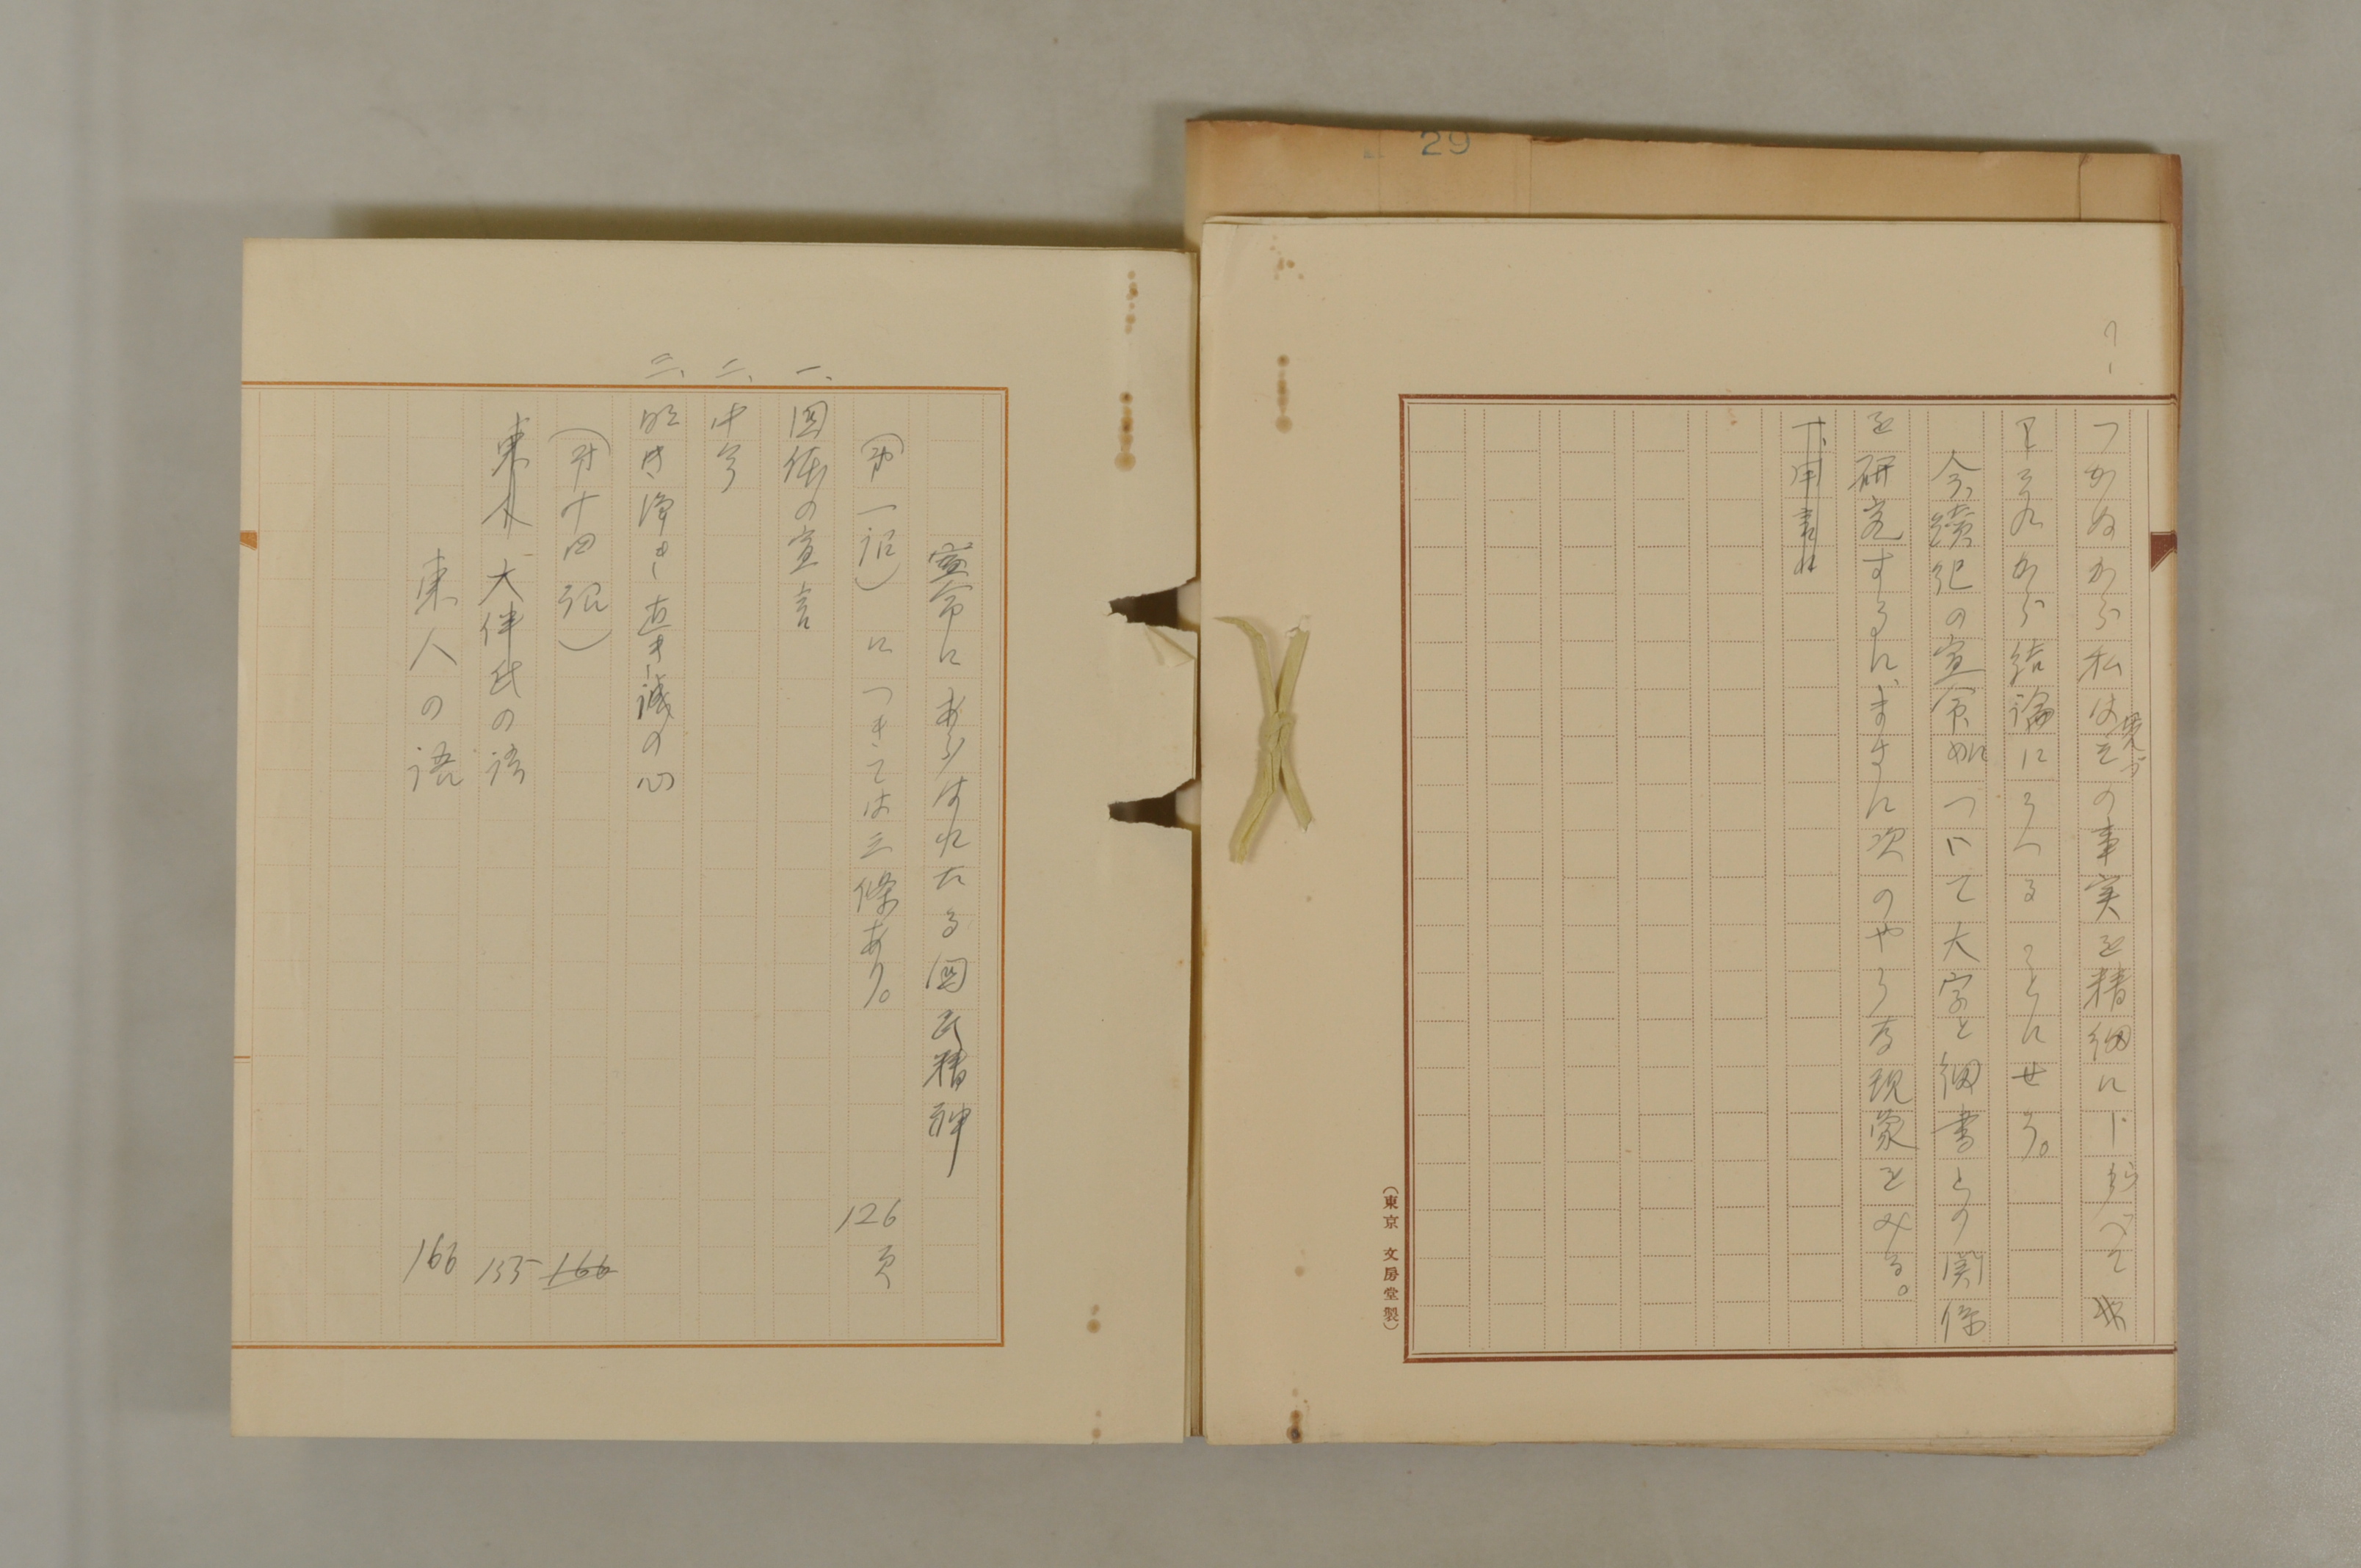 29
つかぬから私は先づその事実を精細にしらべて
それから結論にうつることにせう。
今、續紀の宣命について大字と細書との関係
を研究するに、まづ次のやうな現象をみる。
体用言は
(東京 文房堂製)
宣命にあらはれたる國民精神
(第一詔)につきては三條あり。 126頁
一、國体の宣言
二、中今
三、明き浄き直き誠の心
(第十四詔) 166
東人 大伴氏の語 135
東人の語 166